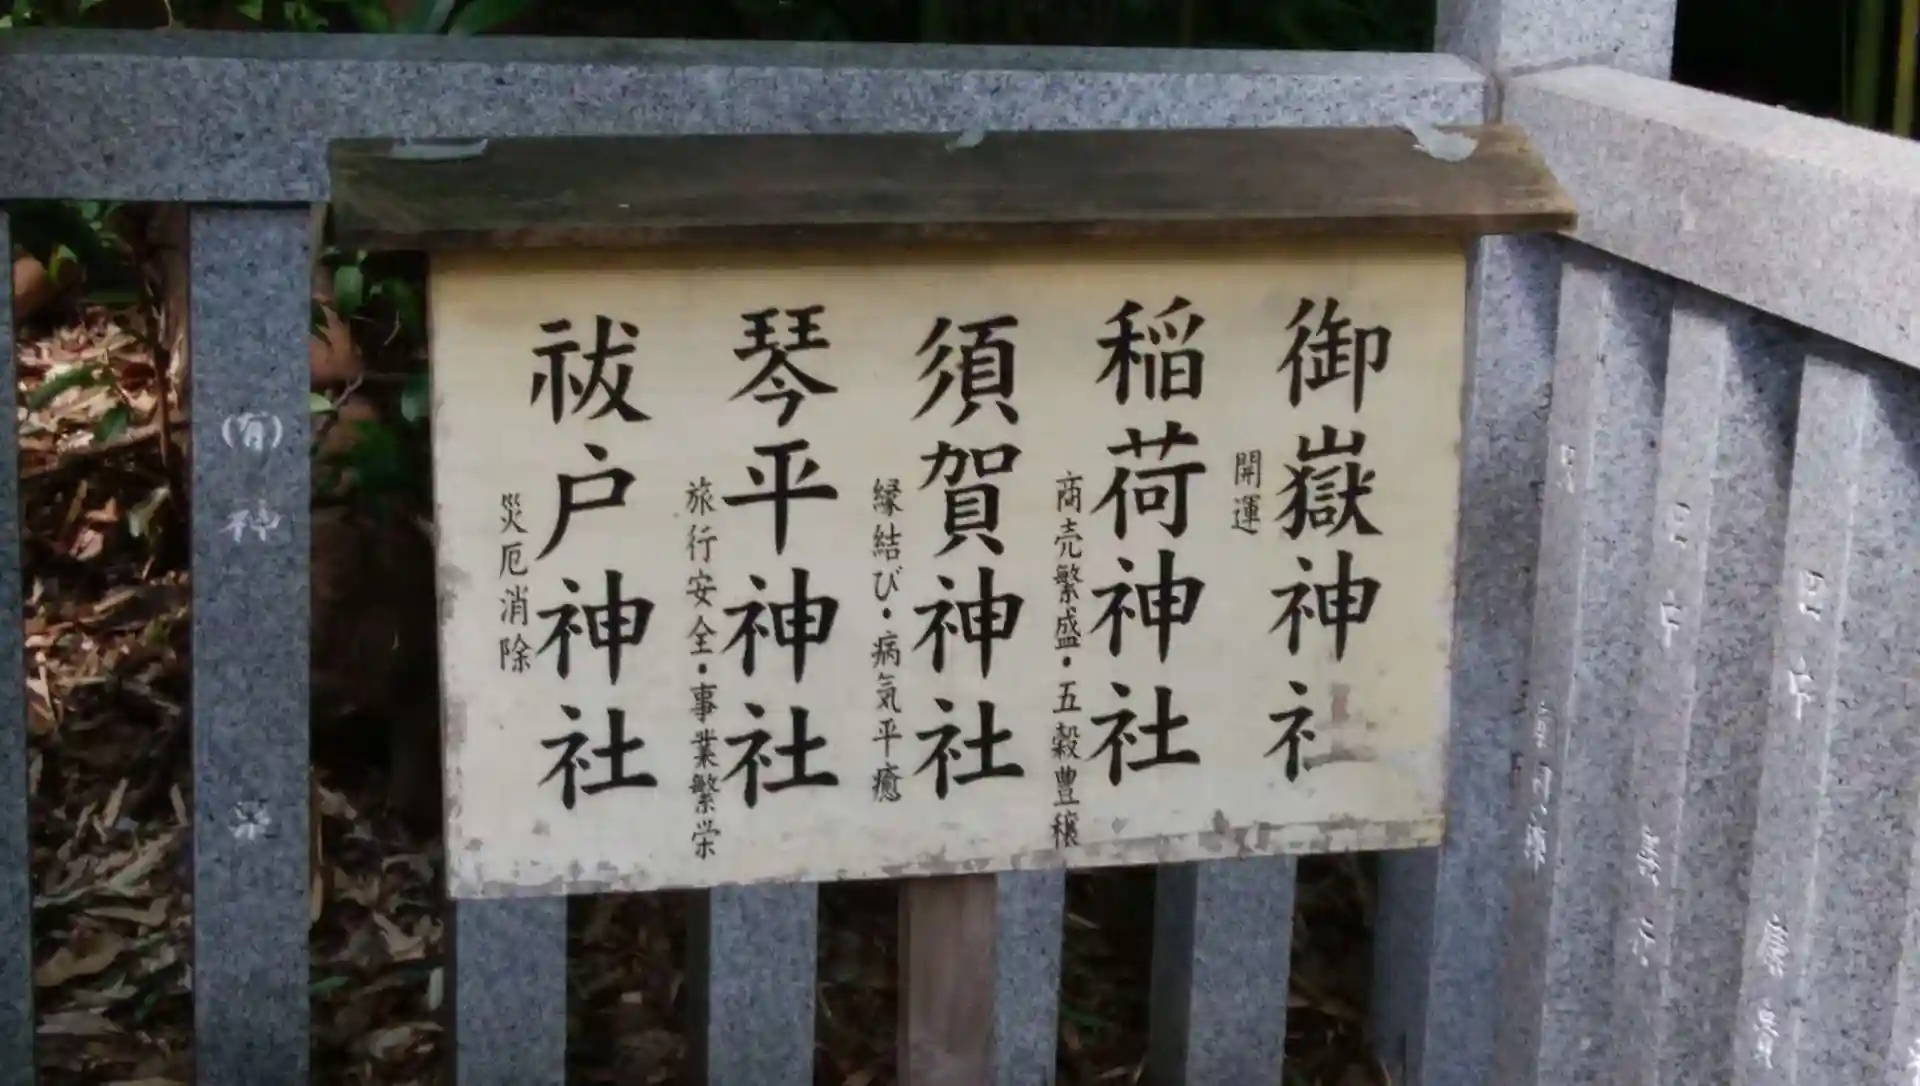 御嶽神社
開運
稲荷神社
商売繁盛・五穀豊穣
須賀神社
縁結び・病気平癒
琴平神社
旅行安全・事業繁栄
祓戸神社
災厄消除
(有)
神